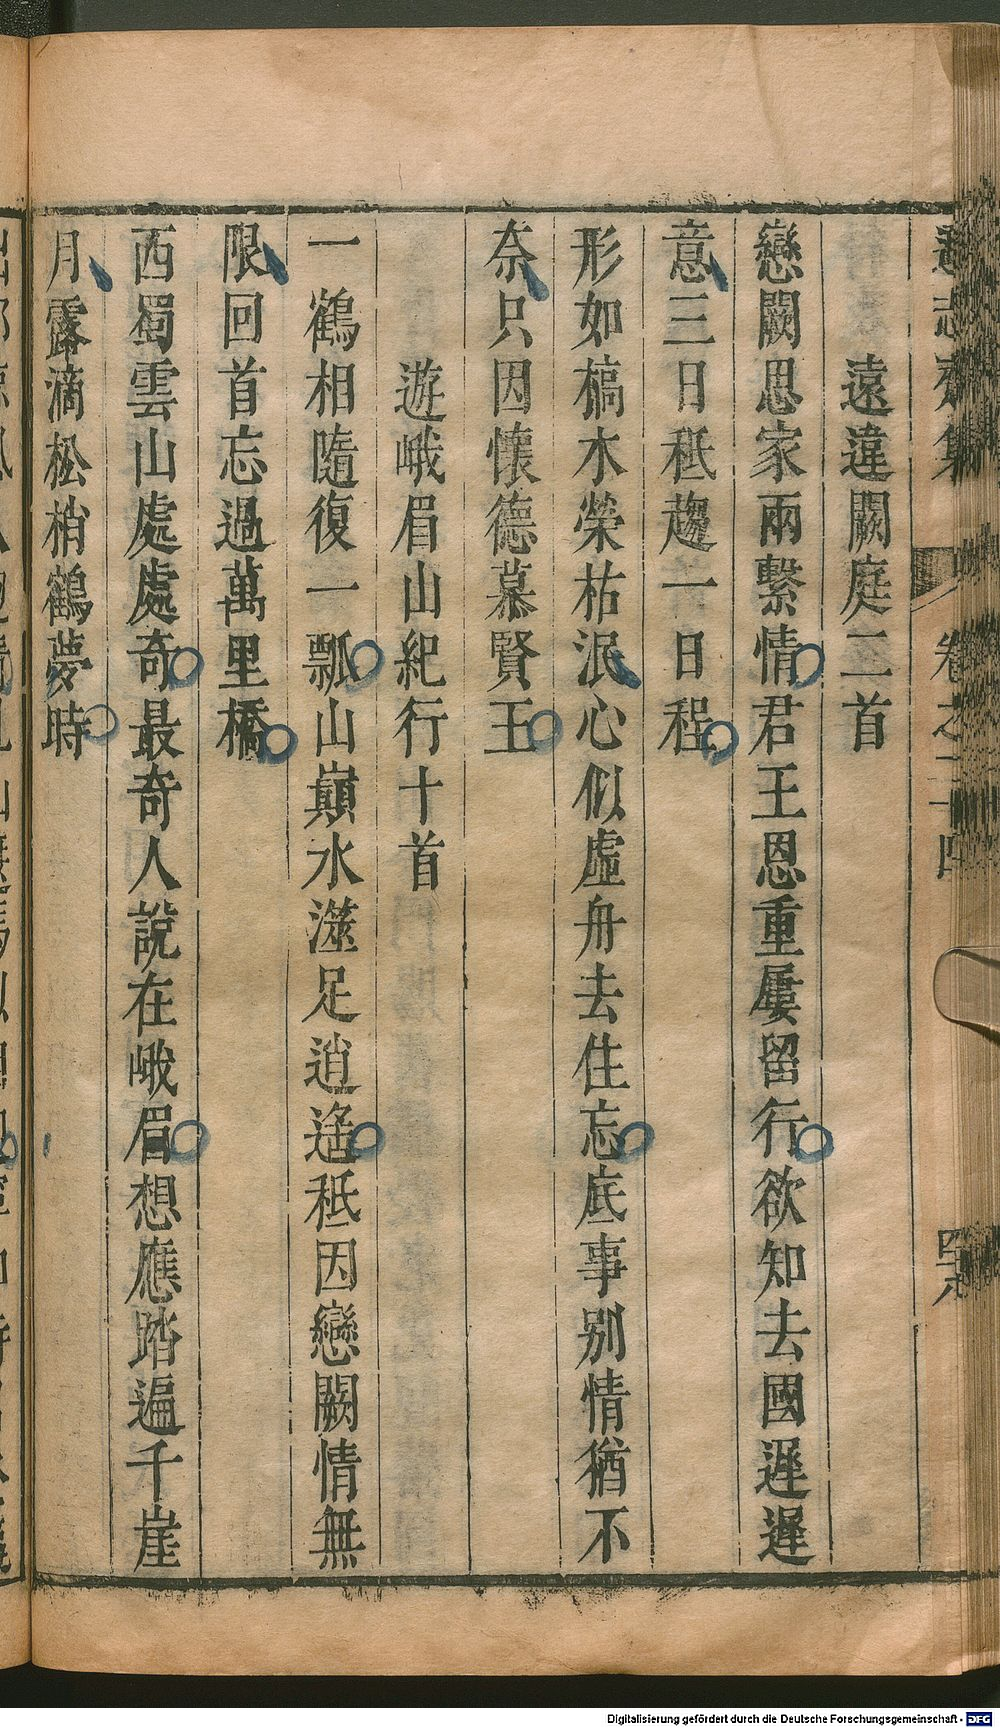 遠違闕庭二首
戀闕思家兩繫情君王恩重屢留行欲知去國遲遲
意三日秪趨一日程
形如槁木榮枯泯心似虛舟去住忘底事別情猶不
奈只因懷德慕賢王
遊峨眉山紀行十首
一鶴相隨復一瓢山巔水澨足逍遙秪因戀闕情無
限回首忘過萬里橋
西蜀雲山處處奇最奇人說在峨眉想應踏遍千崖
月露滴松梢鶴夢時
Digitalisierung gefördert durch die Deutsche Forschungsgemeinschaft - DFG